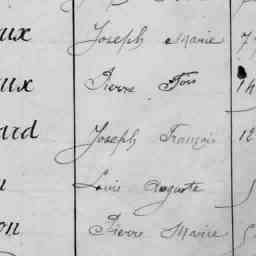 ux Joseph Marie 7
ux Pierre Fois 14
ard Joseph François 12
Louis Auguste
on Pierre Marie